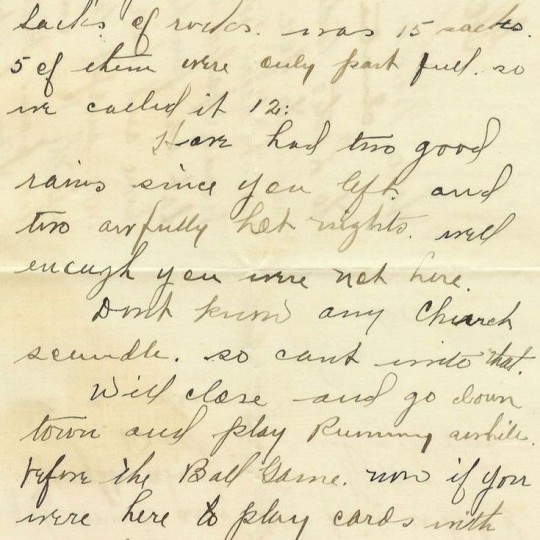 sacks of rocks. was 15 sacks.
5 of them were only part full. so
we called it 12:
Have had two good
rains since you left. and
two awfully hot nights. well
enough you were not here.
Dont know any Church
scandle. so cant write that.
Will close and go down
town and play Rummy awhile.
before the Ball Game. now if you
were here to play cards with